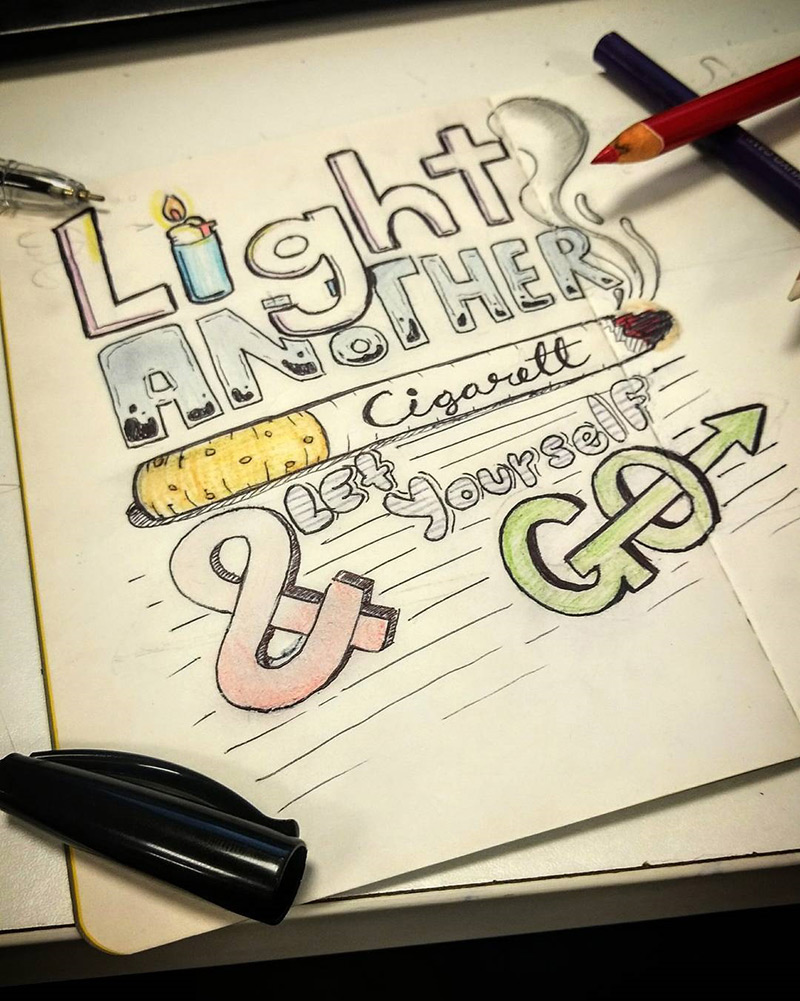 Light
ANOTHER
Cigarett
& LEt Yourself
GO